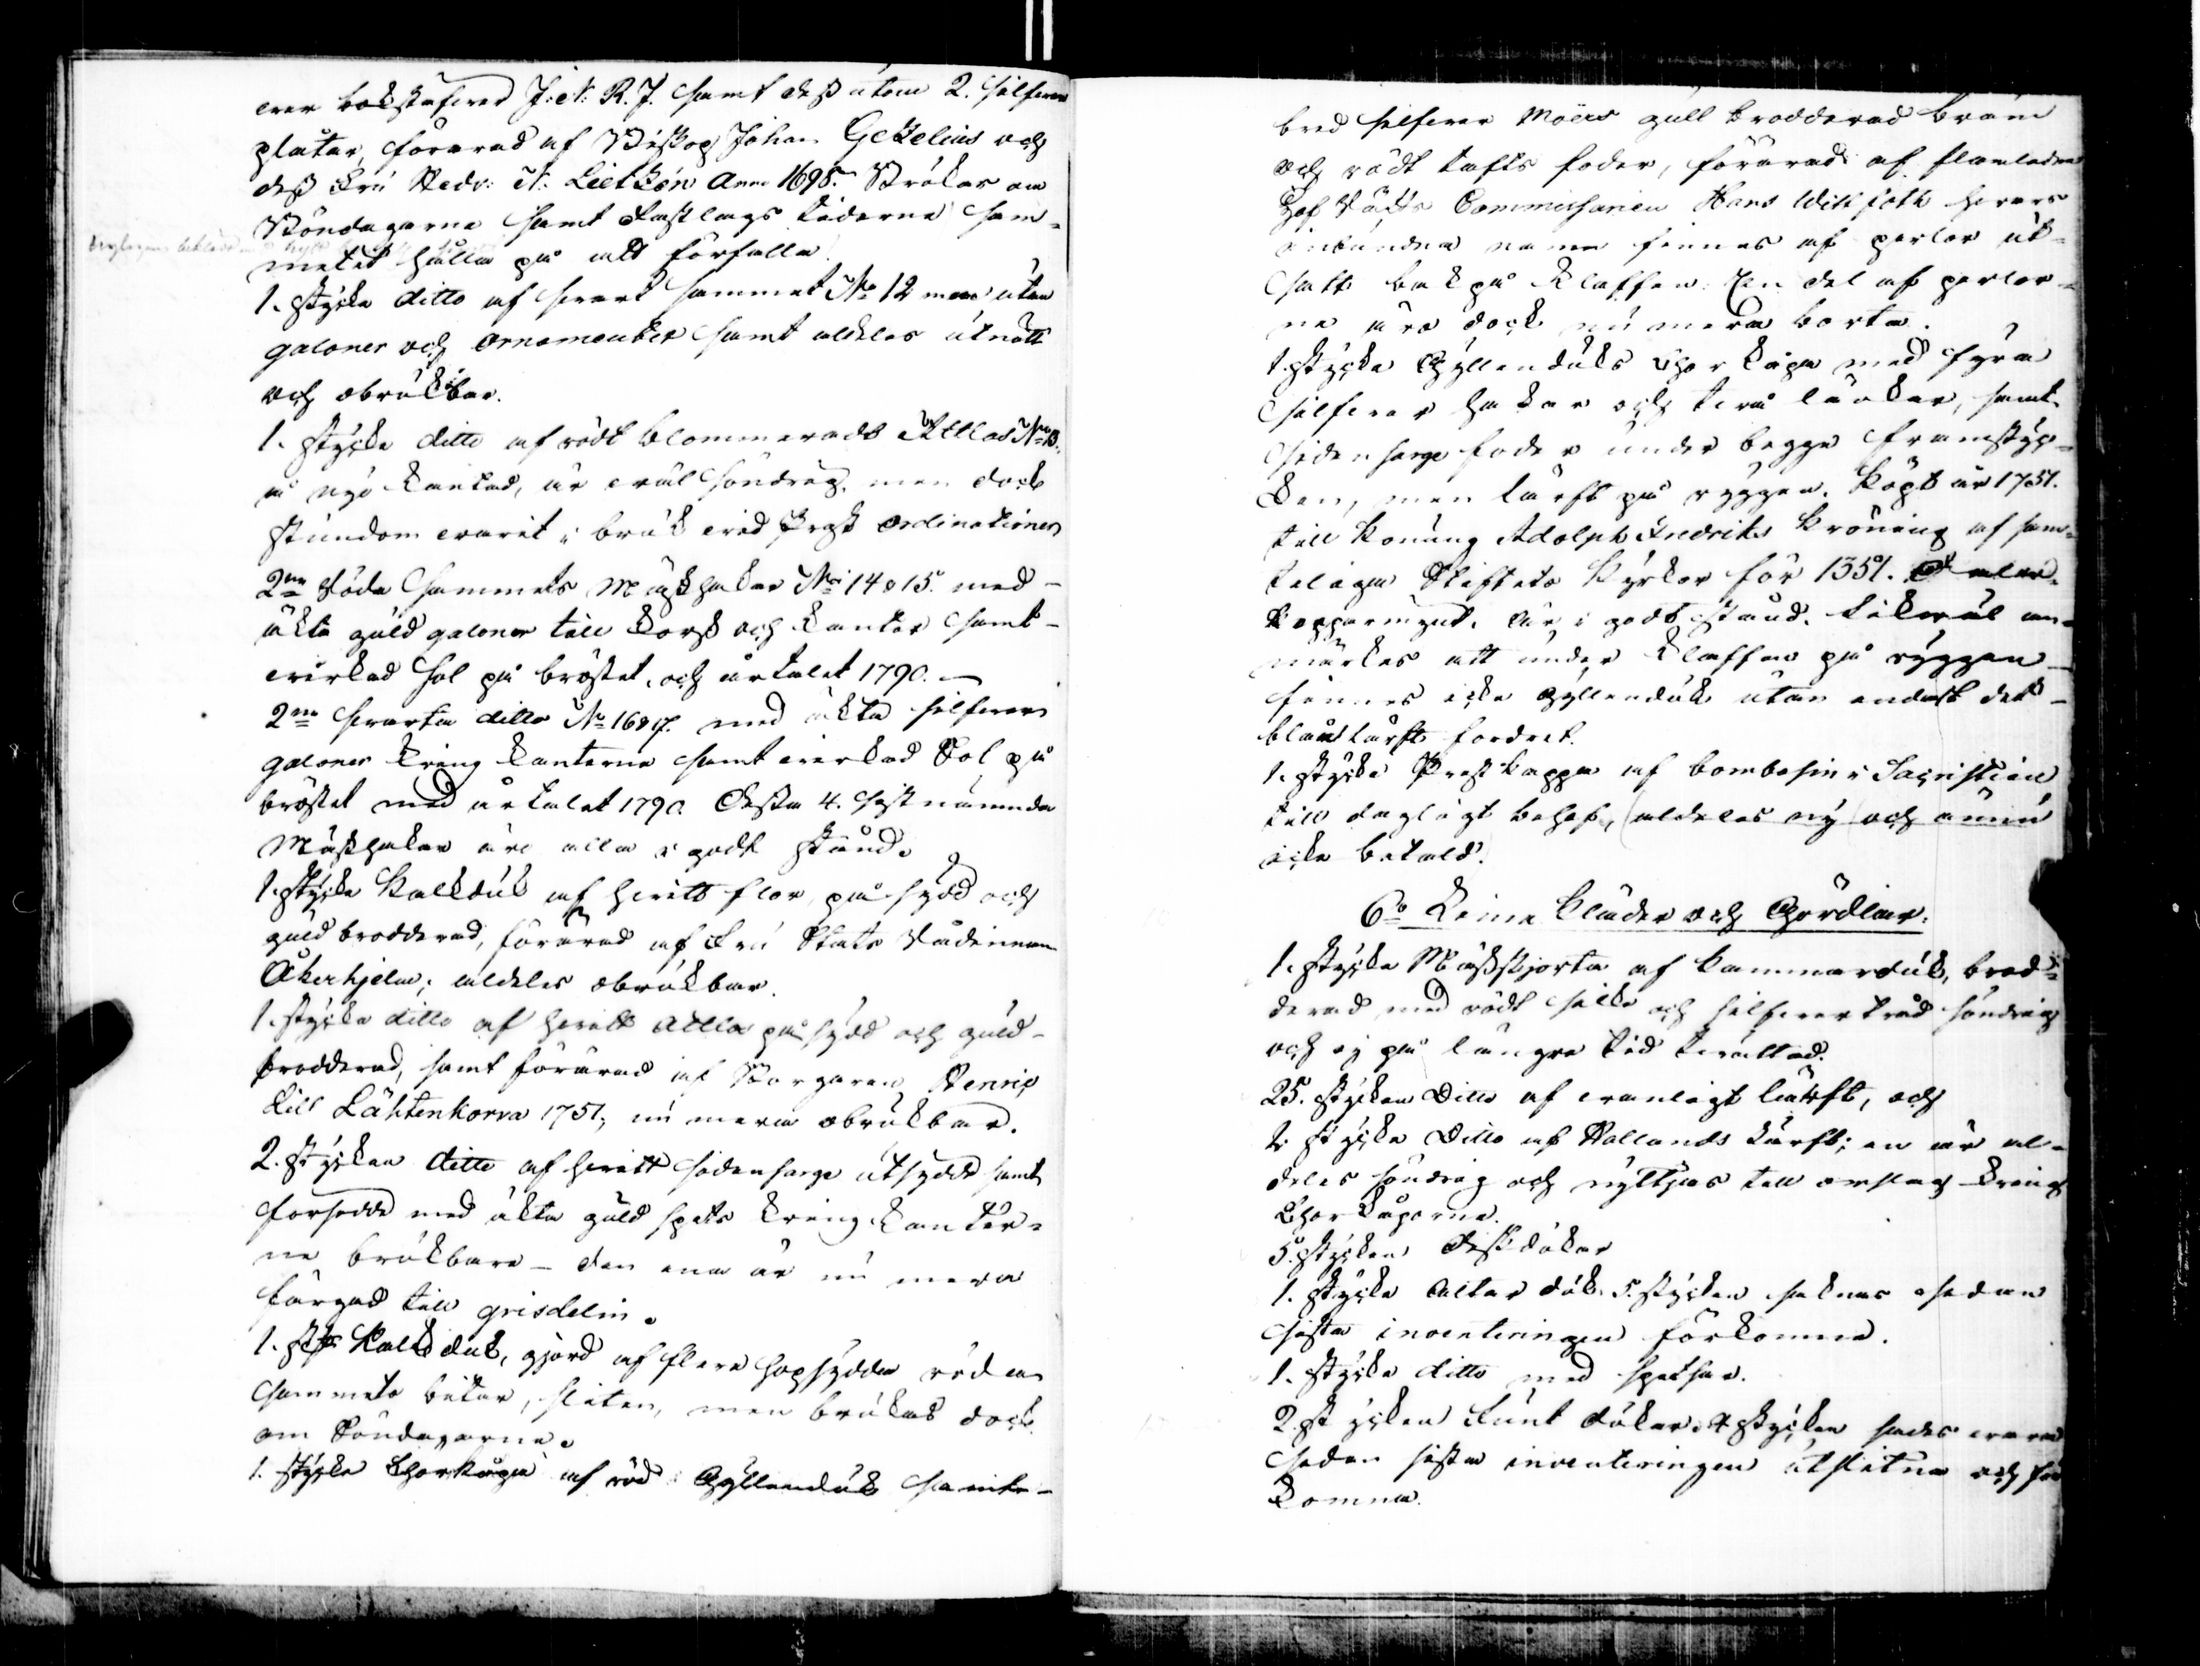 wer bokstäfwer J: N: R. J. samt dess utom 2. silfwer
plåtar, förärad af Biskop Johan Gezelius och
dess Fru Hedv: N: Lietzén Anno 1698. Brukas om
Böndagarna samt Fastlags tiderna Sam-
metet håller på att förfalla.
1. stycke ditto af swart sammet No 12 men utan
galoner och ornamenter samt aldeles utnött
och obrukbar.
1. stycke ditto af rödt blommeradt Attlas No 13.
å nyo kantad, är wäl söndrig, men dock
stundom warit i bruk wid Prest Ordinationer
2ne Röda Sammets Mässhakar No 14 o 15. med
äkta guld galoner till kors och kanter samt
wirkad sol på bröstet, och årtalet 1790.
2ne swarta ditto No 16 o 17. med äkta silfwer
galoner kring kanterna samt wirkad Sol på
bröstet med årtalet 1790. Dessa 4. sistnämnda
Mässhakar äro alla i godt stånd.
1. stycke Kalkduk af hwitt flor, på sydd och
guld brodderad, förärad af Fru Stats Rådinnan
Åkerhjelm; aldeles obrukbar.
1. stycke ditto af hwitt Attlas påsydd och guld-
brodderad, samt förärad af Borgaren Henric
Lill Lähtenkorva 1751; nu mera obrukbar.
2. stycken ditto af hwitt sidensarge utsydde samt
försedde med äkta guld spets kring kanter-
ne brukbare – den ena är nu mera
färgad till grisdelin.
1. st: Kalkduk, gjord af flera hopsydda röda
sammets bitar, sliten, men brukas dock
om Söndagarne.
1. stycke Chorkåpa af röd Gyllenduk samt
bred silfwer Moërs gull brodderad bräm
och rödt tafts foder, förärad af framledne
Hof Rätts Commissarien Hans Wittfoth hwars
inbundna namn finnes af perlor ut-
satt bak på Klaffen. En del af perlor-
ne äro dock nu mera borta.
1. stycke Gyllenduks Chor kåpa med fyra
silfwer hakar och twå länkar, samt
sidensarge foder under begge framstyc-
ken, men lärft på ryggen. Köpt år 1751.
till Konung Adolph Fredriks Kröning af sam-
teliga Stiftets Kyrkor för 1351. Daler
Kopparmynt. Är i godt stånd. Likwäl an-
märkes att under Klaffen på ryggen
finnes icke Gyllenduk utan endast det
blå lärfts fordret.
1. stycke Prest kappa af bombasin i Sacristian
till dagligt behof, aldeles ny och ännu
icke betald.
6o Linne Kläder och Gördlar.
1. stycke Mässskjorta af Kammarduk, brod-
derad med rödt silke och silfwer tråd söndrig
och ej på längre tid twättad.
25. stycken Ditto af wanligt lärft, och
2 stycke Ditto af Hollands lärft; en är al-
deles söndrig och nyttjas till omslag kring
Chorkåporna.
5. stycken Disk dukar
1. stycke Altar duk. 5. stycken saknas sedan
sista inventeringen förkomne.
1. stycke ditto med spetsar.
2. stycken Funt dukar. 4 stycken sades wara
sedan sista inventeringen utslitna och för
komna.